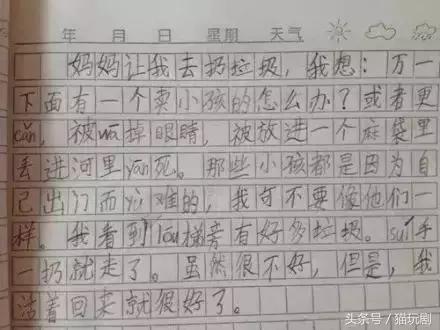 年 月 日 星期 天气
妈妈让我去扔垃圾，我想：万一
下面有一个卖小孩的怎么办？或者更
cǎn，被wā掉眼睛，被放进一个麻袋里
丢进河里yān死。那些小孩都是因为自
己出门而yù难的，我可不要像他们一
样。我看到lóu梯旁有好多垃圾。suí手
一扔就走了。虽然很不好，但是，我
活着回来就很好了。
头条号 / 猫玩剧